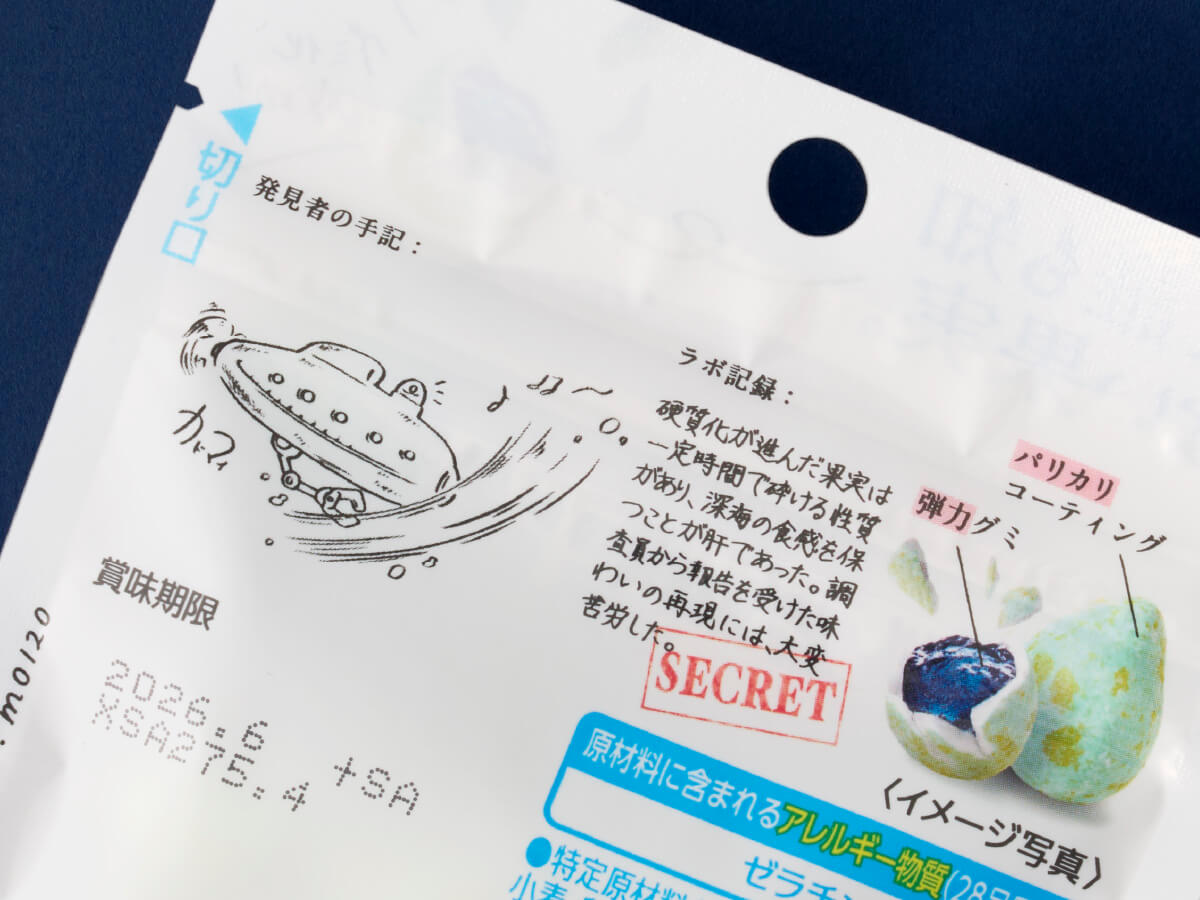 切り口
発見者の手記：
ラボ記録：
硬質化が進んだ果実は
一定時間で砕ける性質
があり、深海の食感を保
つことが肝であった。調
査員から報告を受けた味
わいの再現には、大変
苦労した。
SECRET
パリカリ
コーティング
弾力グミ
〈イメージ写真〉
賞味期限
2026.6
XSA275.4 +SA
m0120
原材料に含まれるアレルギー物質(28品
ゼラチン
●特定原材料
小麦